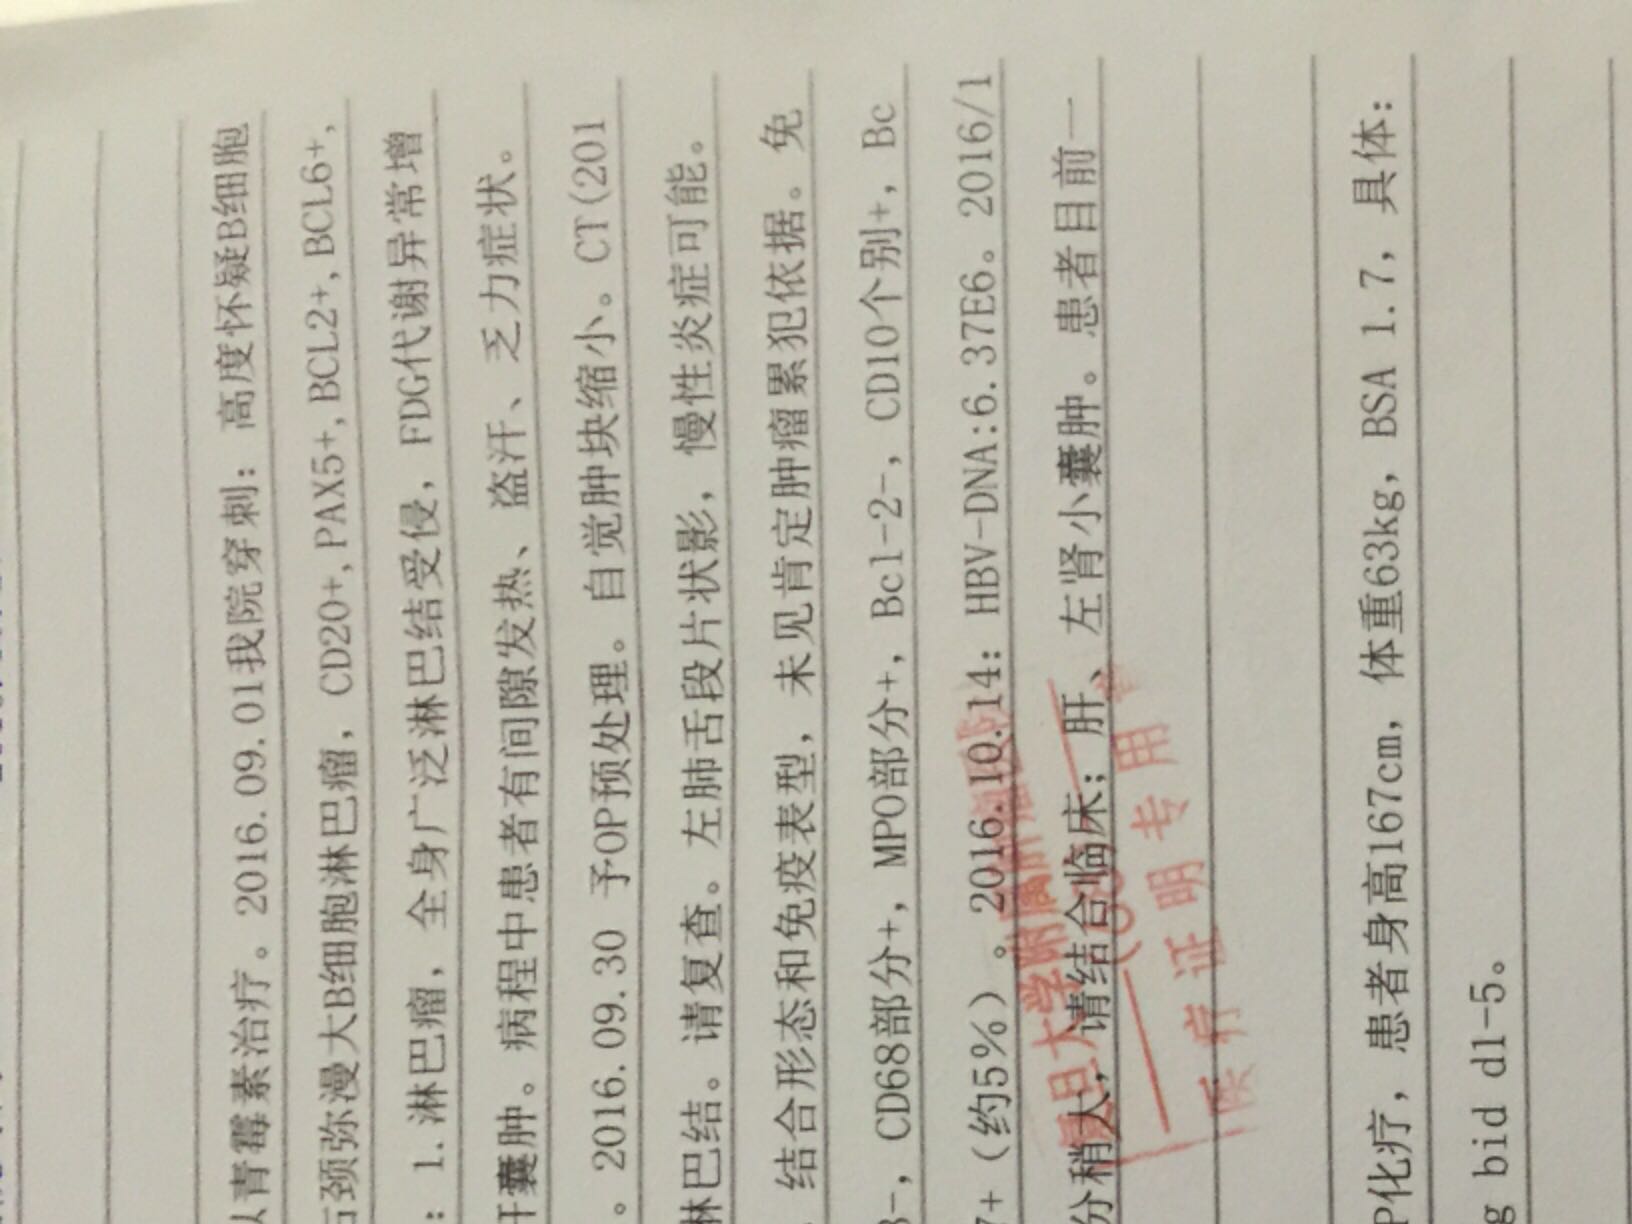 以青霉素治疗。2016.09.01我院穿刺：高度怀疑B细胞
右颈弥漫大B细胞淋巴瘤，CD20+,PAX5+,BCL2+,BCL6+,
：1.淋巴瘤，全身广泛淋巴结受侵，FDG代谢异常增
肝囊肿。病程中患者有间隙发热、盗汗、乏力症状。
。2016.09.30 予OP预处理。自觉肿块缩小。CT(201
淋巴结。请复查。左肺舌段片状影，慢性炎症可能。
结合形态和免疫表型，未见肯定肿瘤累犯依据。免
3-，CD68部分+，MPO部分+，Bcl-2-，CD10个别+，Bc
7+（约5%）。2016.10.14：HBV-DNA:6.37E6。2016/1
分稍大，请结合临床；肝、左肾小囊肿。患者目前一
复旦大学附属肿瘤
医疗证明专用章
P化疗，患者身高167cm，体重63kg，BSA 1.7，具体：
g bid d1-5。